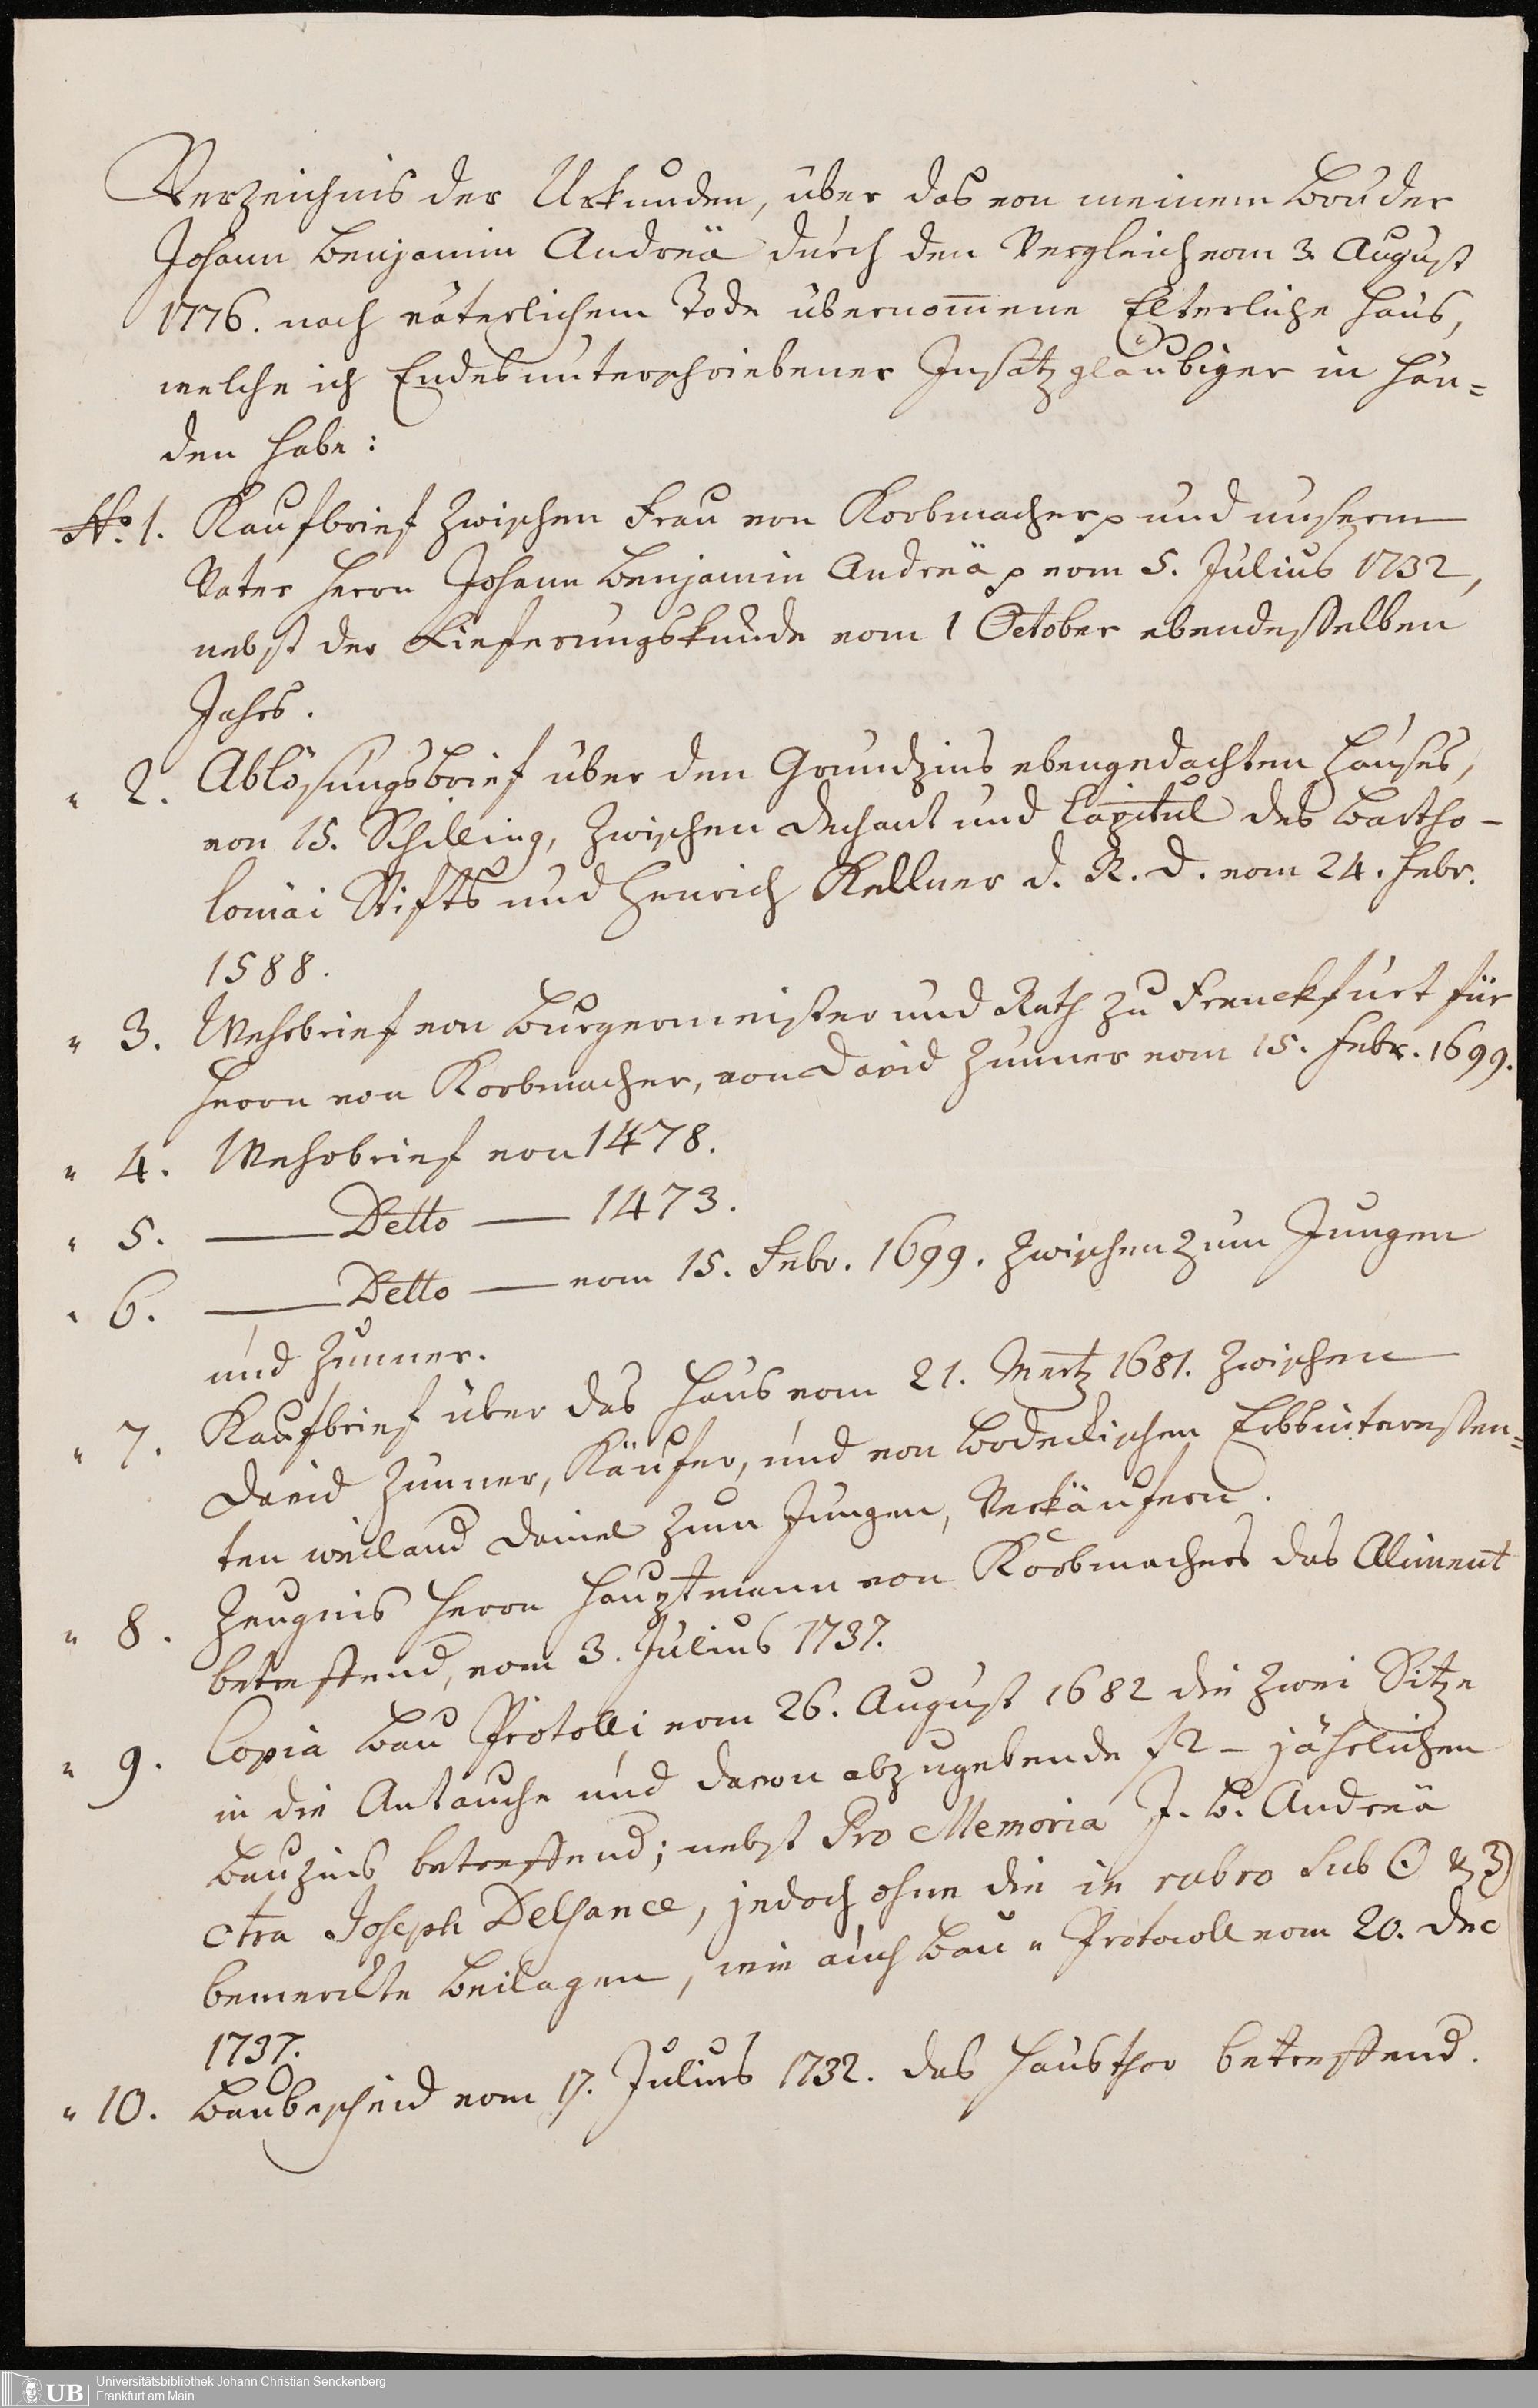 Verzeichnis der Urkunden, über das von meinem Bruder
Johann Benjamin Andreä durch den Vergleich vom 3. August
1776. nach väterlichem Tode übernom̄ene Elterliche Haus,
welche ich Endesunterschriebener Insatzgläubiger in Hän=
den habe:
No. 1. Kaufbrief zwischen Frau von Korbmacher p und unserm
Vater Herrn Johann Benjamin Andreä p vom 5. Julius 1732,
nebst der Lieferungskunde vom 1 October ebendesselben
Jahrs.
" 2. Ablösungsbrief über den Grundzins ebengedachten Hauses,
von 15. Schilling, zwischen Dechant und Capitul des Bartho-
lomäi Stifts und Henrich Kellner d. R. D. vom 24. Febr.
1588.
" 3. Wehrbrief von Burgermeister und Rath zu Franckfurt für
Herrn von Korbmacher, von David Zunner vom 15. Febr. 1699.
" 4. Wehrbrief von 1478.
" 5. —— Detto — 1473.
" 6. —— Detto — vom 15. Febr. 1699. zwischen zum Jungen
und Zunner.
" 7. Kaufbrief über das Haus vom 21. Mertz 1681. zwischen
David Zunner, Käufer, und von Bodeckischen Erbsinteressen=
ten weiland Daniel zum Jungen, Verkäufern.
" 8. Zeugnis Herrn Hauptmann von Korbmachers das Aliment
betreffend, vom 3. Julius 1737.
" 9. Copia Bau Protolli vom 26. August 1682 die zwei Sitze
in die Antauche und davon abzugebende f2 – jährlichen
Bauzins betreffend; nebst Pro Memoria J. B. Andreä
ctra Joseph Delsance, jedoch ohne die in rubro sub ☉ & 3)
bemerckte Beilagen, wie auch Bau " Protocoll vom 20. Dec
1737.
" 10. Baubescheid vom 17. Julius 1732. das Hausthor betreffend.
UB
Universitätsbibliothek Johann Christian Senckenberg
Frankfurt am Main